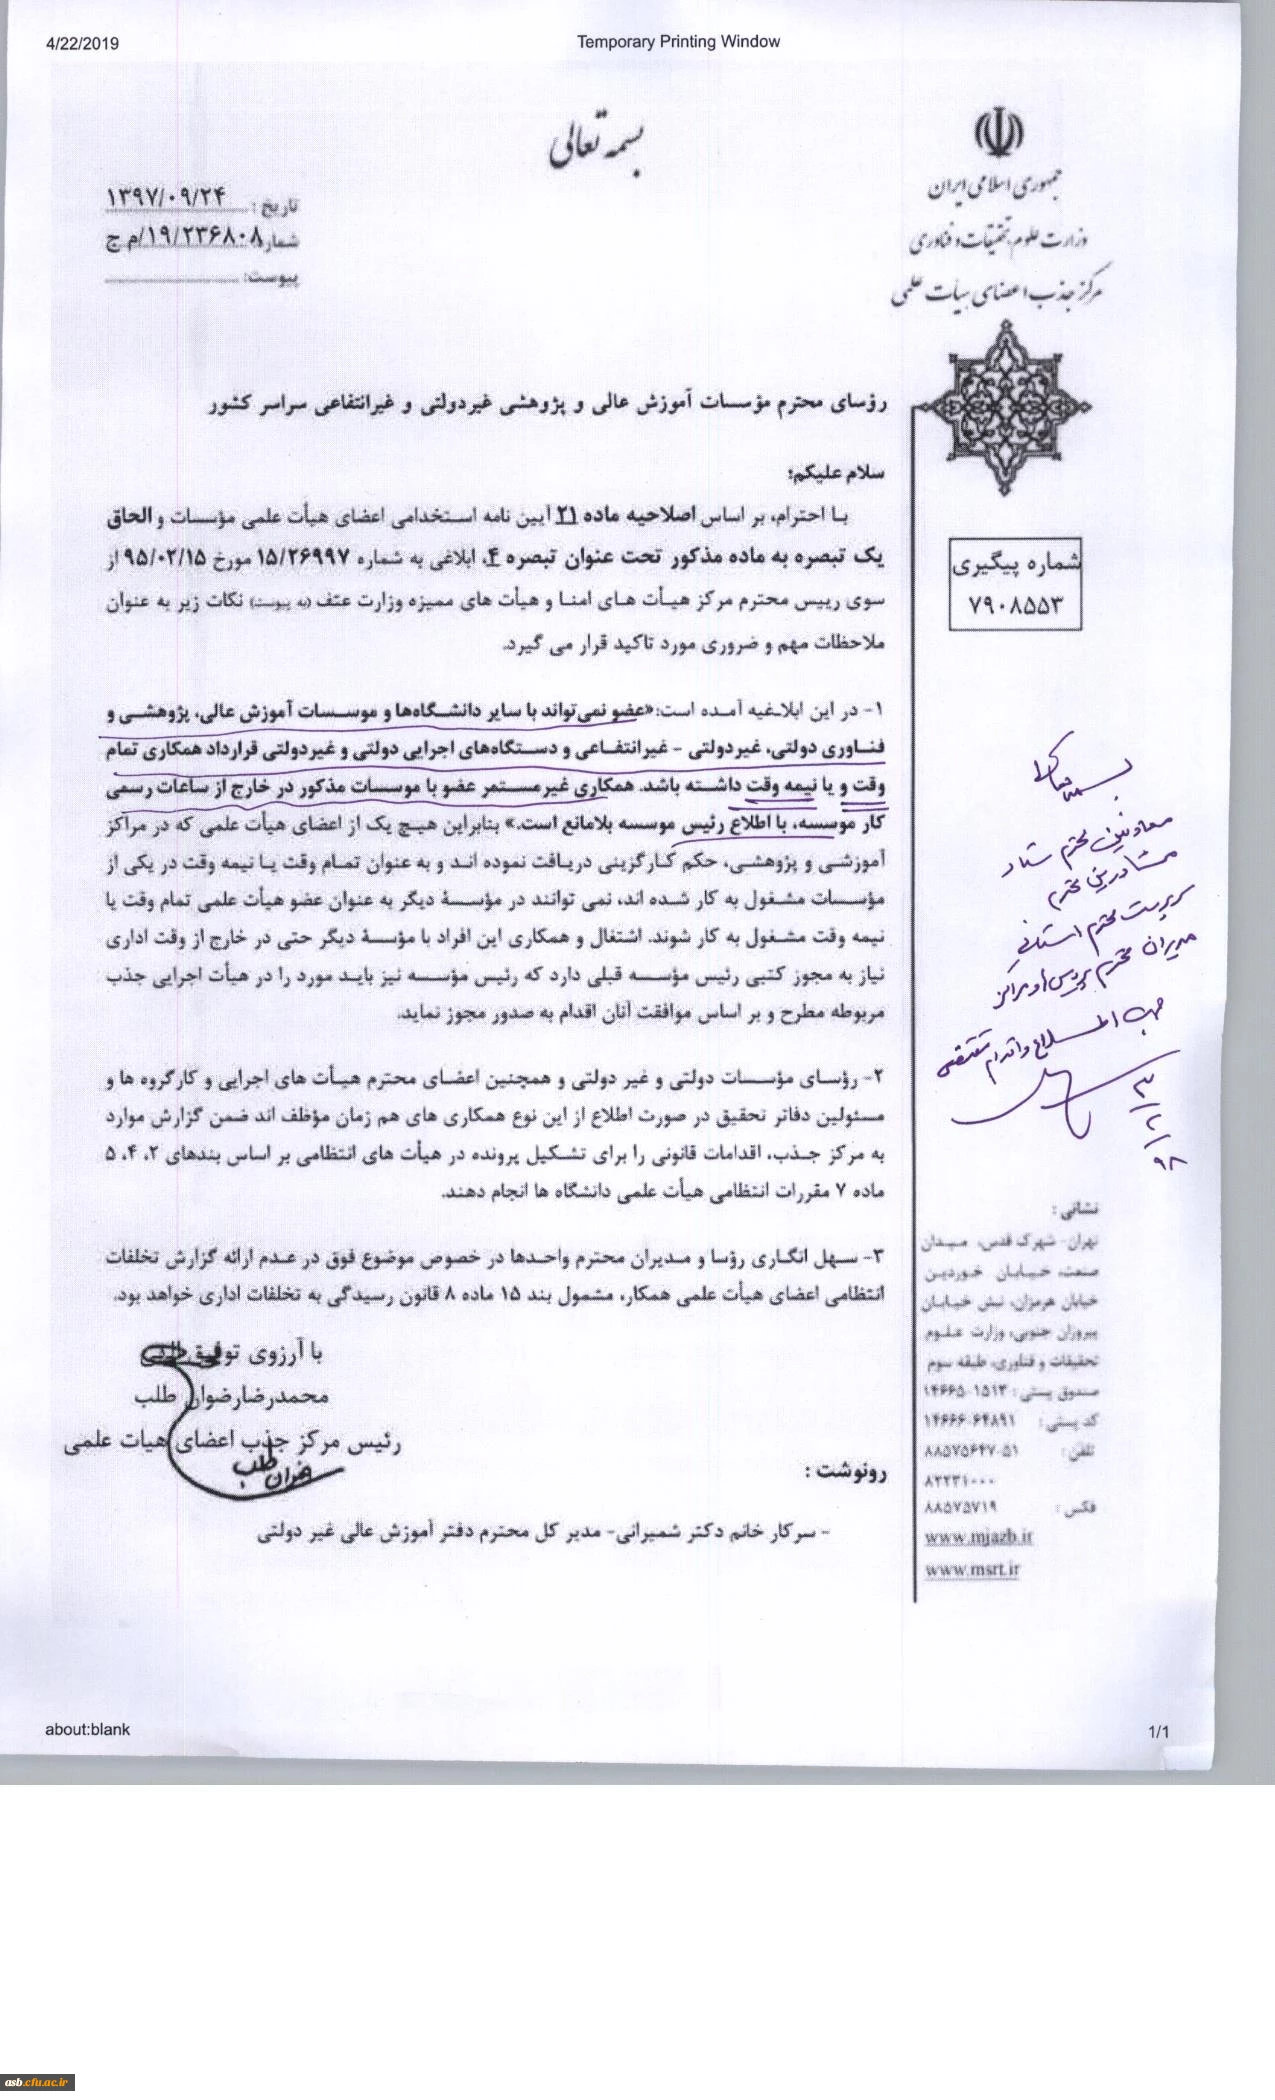 4/22/2019
Temporary Printing Window
بسمه تعالی
جمهوری اسلامی ایران
وزارت علوم، تحقیقات و فناوری
مرکز جذب اعضای هیأت علمی
تاریخ: ۱۳۹۷/۰۹/۲۴
شماره ۱۹/۲۳۶۸۰۸/م ج
پیوست:
رؤسای محترم مؤسسات آموزش عالی و پژوهشی غیردولتی و غیرانتفاعی سراسر کشور
سلام علیکم؛
با احترام، بر اساس اصلاحیه ماده ۲۱ آیین نامه استخدامی اعضای هیأت علمی مؤسسات و الحاق
یک تبصره به ماده مذکور تحت عنوان تبصره ۴، ابلاغی به شماره ۱۵/۲۶۹۹۷ مورخ ۹۵/۰۲/۱۵ از
سوی رییس محترم مرکز هیأت های امنا و هیأت های ممیزه وزارت عتف (به پیوست) نکات زیر به عنوان
ملاحظات مهم و ضروری مورد تاکید قرار می گیرد.
۱- در این ابلاغیه آمده است: «عضو نمی‌تواند با سایر دانشگاه‌ها و موسسات آموزش عالی، پژوهشی و
فناوری دولتی، غیردولتی - غیرانتفاعی و دستگاه‌های اجرایی دولتی و غیردولتی قرارداد همکاری تمام
وقت و یا نیمه وقت داشته باشد. همکاری غیرمستمر عضو با موسسات مذکور در خارج از ساعات رسمی
کار موسسه، با اطلاع رئیس موسسه بلامانع است.» بنابراین هیچ یک از اعضای هیأت علمی که در مراکز
آموزشی و پژوهشی، حکم کارگزینی دریافت نموده اند و به عنوان تمام وقت یا نیمه وقت در یکی از
مؤسسات مشغول به کار شده اند، نمی توانند در مؤسسهٔ دیگر به عنوان عضو هیأت علمی تمام وقت یا
نیمه وقت مشغول به کار شوند. اشتغال و همکاری این افراد با مؤسسهٔ دیگر حتی در خارج از وقت اداری
نیاز به مجوز کتبی رئیس مؤسسه قبلی دارد که رئیس مؤسسه نیز باید مورد را در هیأت اجرایی جذب
مربوطه مطرح و بر اساس موافقت آنان اقدام به صدور مجوز نماید.
۲- رؤسای مؤسسات دولتی و غیر دولتی و همچنین اعضای محترم هیأت های اجرایی و کارگروه ها و
مسئولین دفاتر تحقیق در صورت اطلاع از این نوع همکاری های هم زمان مؤظف اند ضمن گزارش موارد
به مرکز جذب، اقدامات قانونی را برای تشکیل پرونده در هیأت های انتظامی بر اساس بندهای ۲، ۴، ۵
ماده ۷ مقررات انتظامی هیأت علمی دانشگاه ها انجام دهند.
۳- سهل انگاری رؤسا و مدیران محترم واحدها در خصوص موضوع فوق در عدم ارائه گزارش تخلفات
انتظامی اعضای هیأت علمی همکار، مشمول بند ۱۵ ماده ۸ قانون رسیدگی به تخلفات اداری خواهد بود.
با آرزوی توفیق الهی
محمدرضا رضوان طلب
رئیس مرکز جذب اعضای هیات علمی
رونوشت :
- سرکار خانم دکتر شمیرانی- مدیر کل محترم دفتر آموزش عالی غیر دولتی
شماره پیگیری
۷۹۰۸۵۵۳
معاونین محترم ستاد
مشاورین محترم
سرپرست محترم استانی
مدیران محترم پردیس و مراکز
جهت اطلاع و اقدام مقتضی
۹۸/۲/۳
نشانی :
تهران- شهرک قدس، میدان
صنعت، خیابان خوردین
خیابان هرمزان، نبش خیابان
پیروزان جنوبی، وزارت علوم
تحقیقات و فناوری، طبقه سوم
صندوق پستی : ۱۵۱۳-۱۴۶۶۵
کد پستی : ۶۴۸۹۱-۱۴۶۶۶
تلفن : ۵۱-۸۸۵۷۵۶۴۷
۸۲۲۳۱۰۰۰
فکس : ۸۸۵۷۵۷۱۹
www.mjazb.ir
www.msrt.ir
about:blank
1/1
asb.cfu.ac.ir